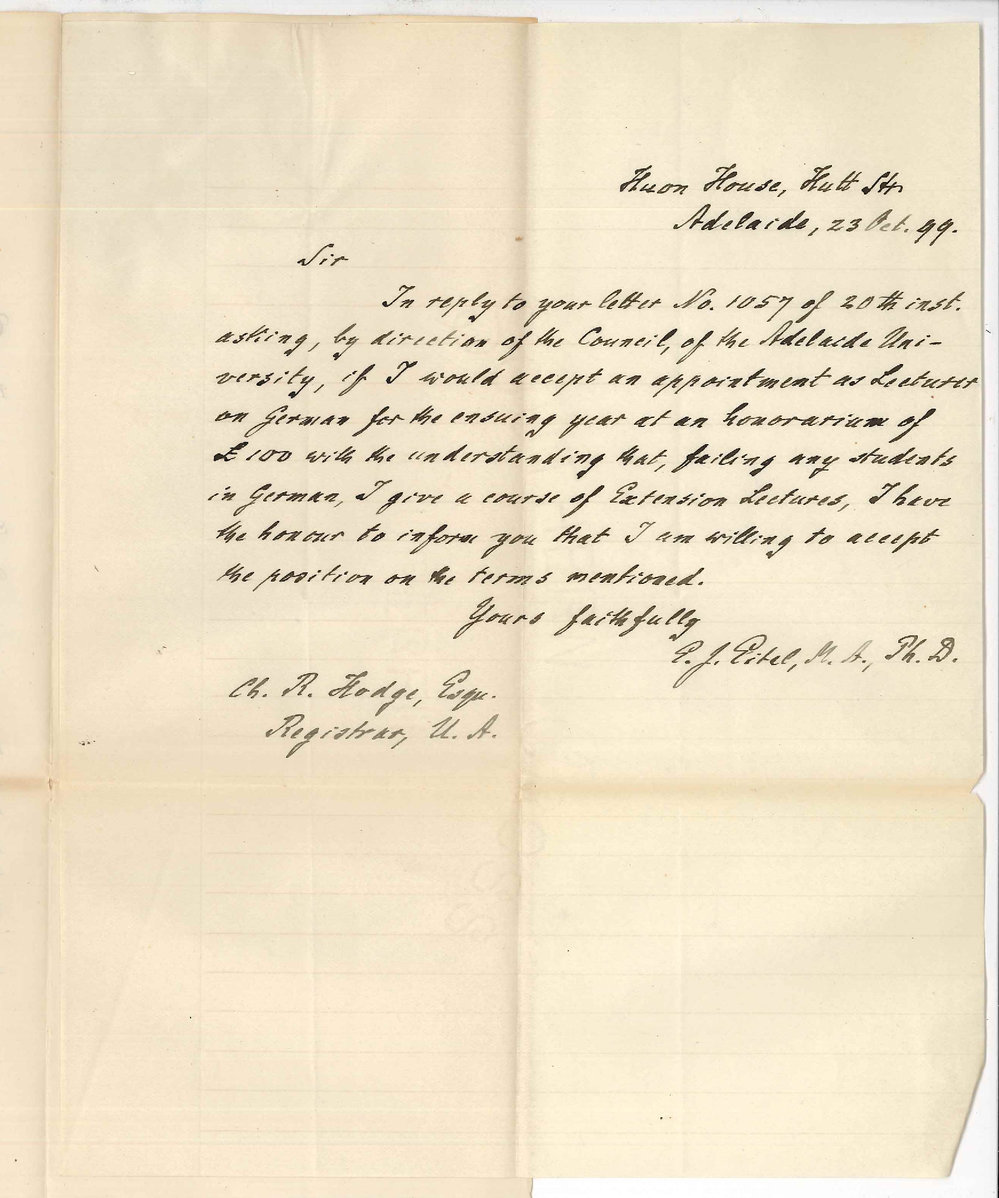 Huon House, Hutt Str.
Adelaide, 23 Oct. 99.
Sir
In reply to your letter No. 1057 of 20th inst.
asking, by direction of the Council, of the Adelaide Uni-
versity, if I would accept an appointment as Lecturer
on German for the ensuing year at an honorarium of
£100 with the understanding that, failing any students
in German, I give a course of Extension Lectures, I have
the honour to inform you that I am willing to accept
the position on the terms mentioned.
Yours faithfully
E. J. Eitel, M. A., Ph. D.
Ch. R. Hodge, Esqu.
Registrar, U. A.